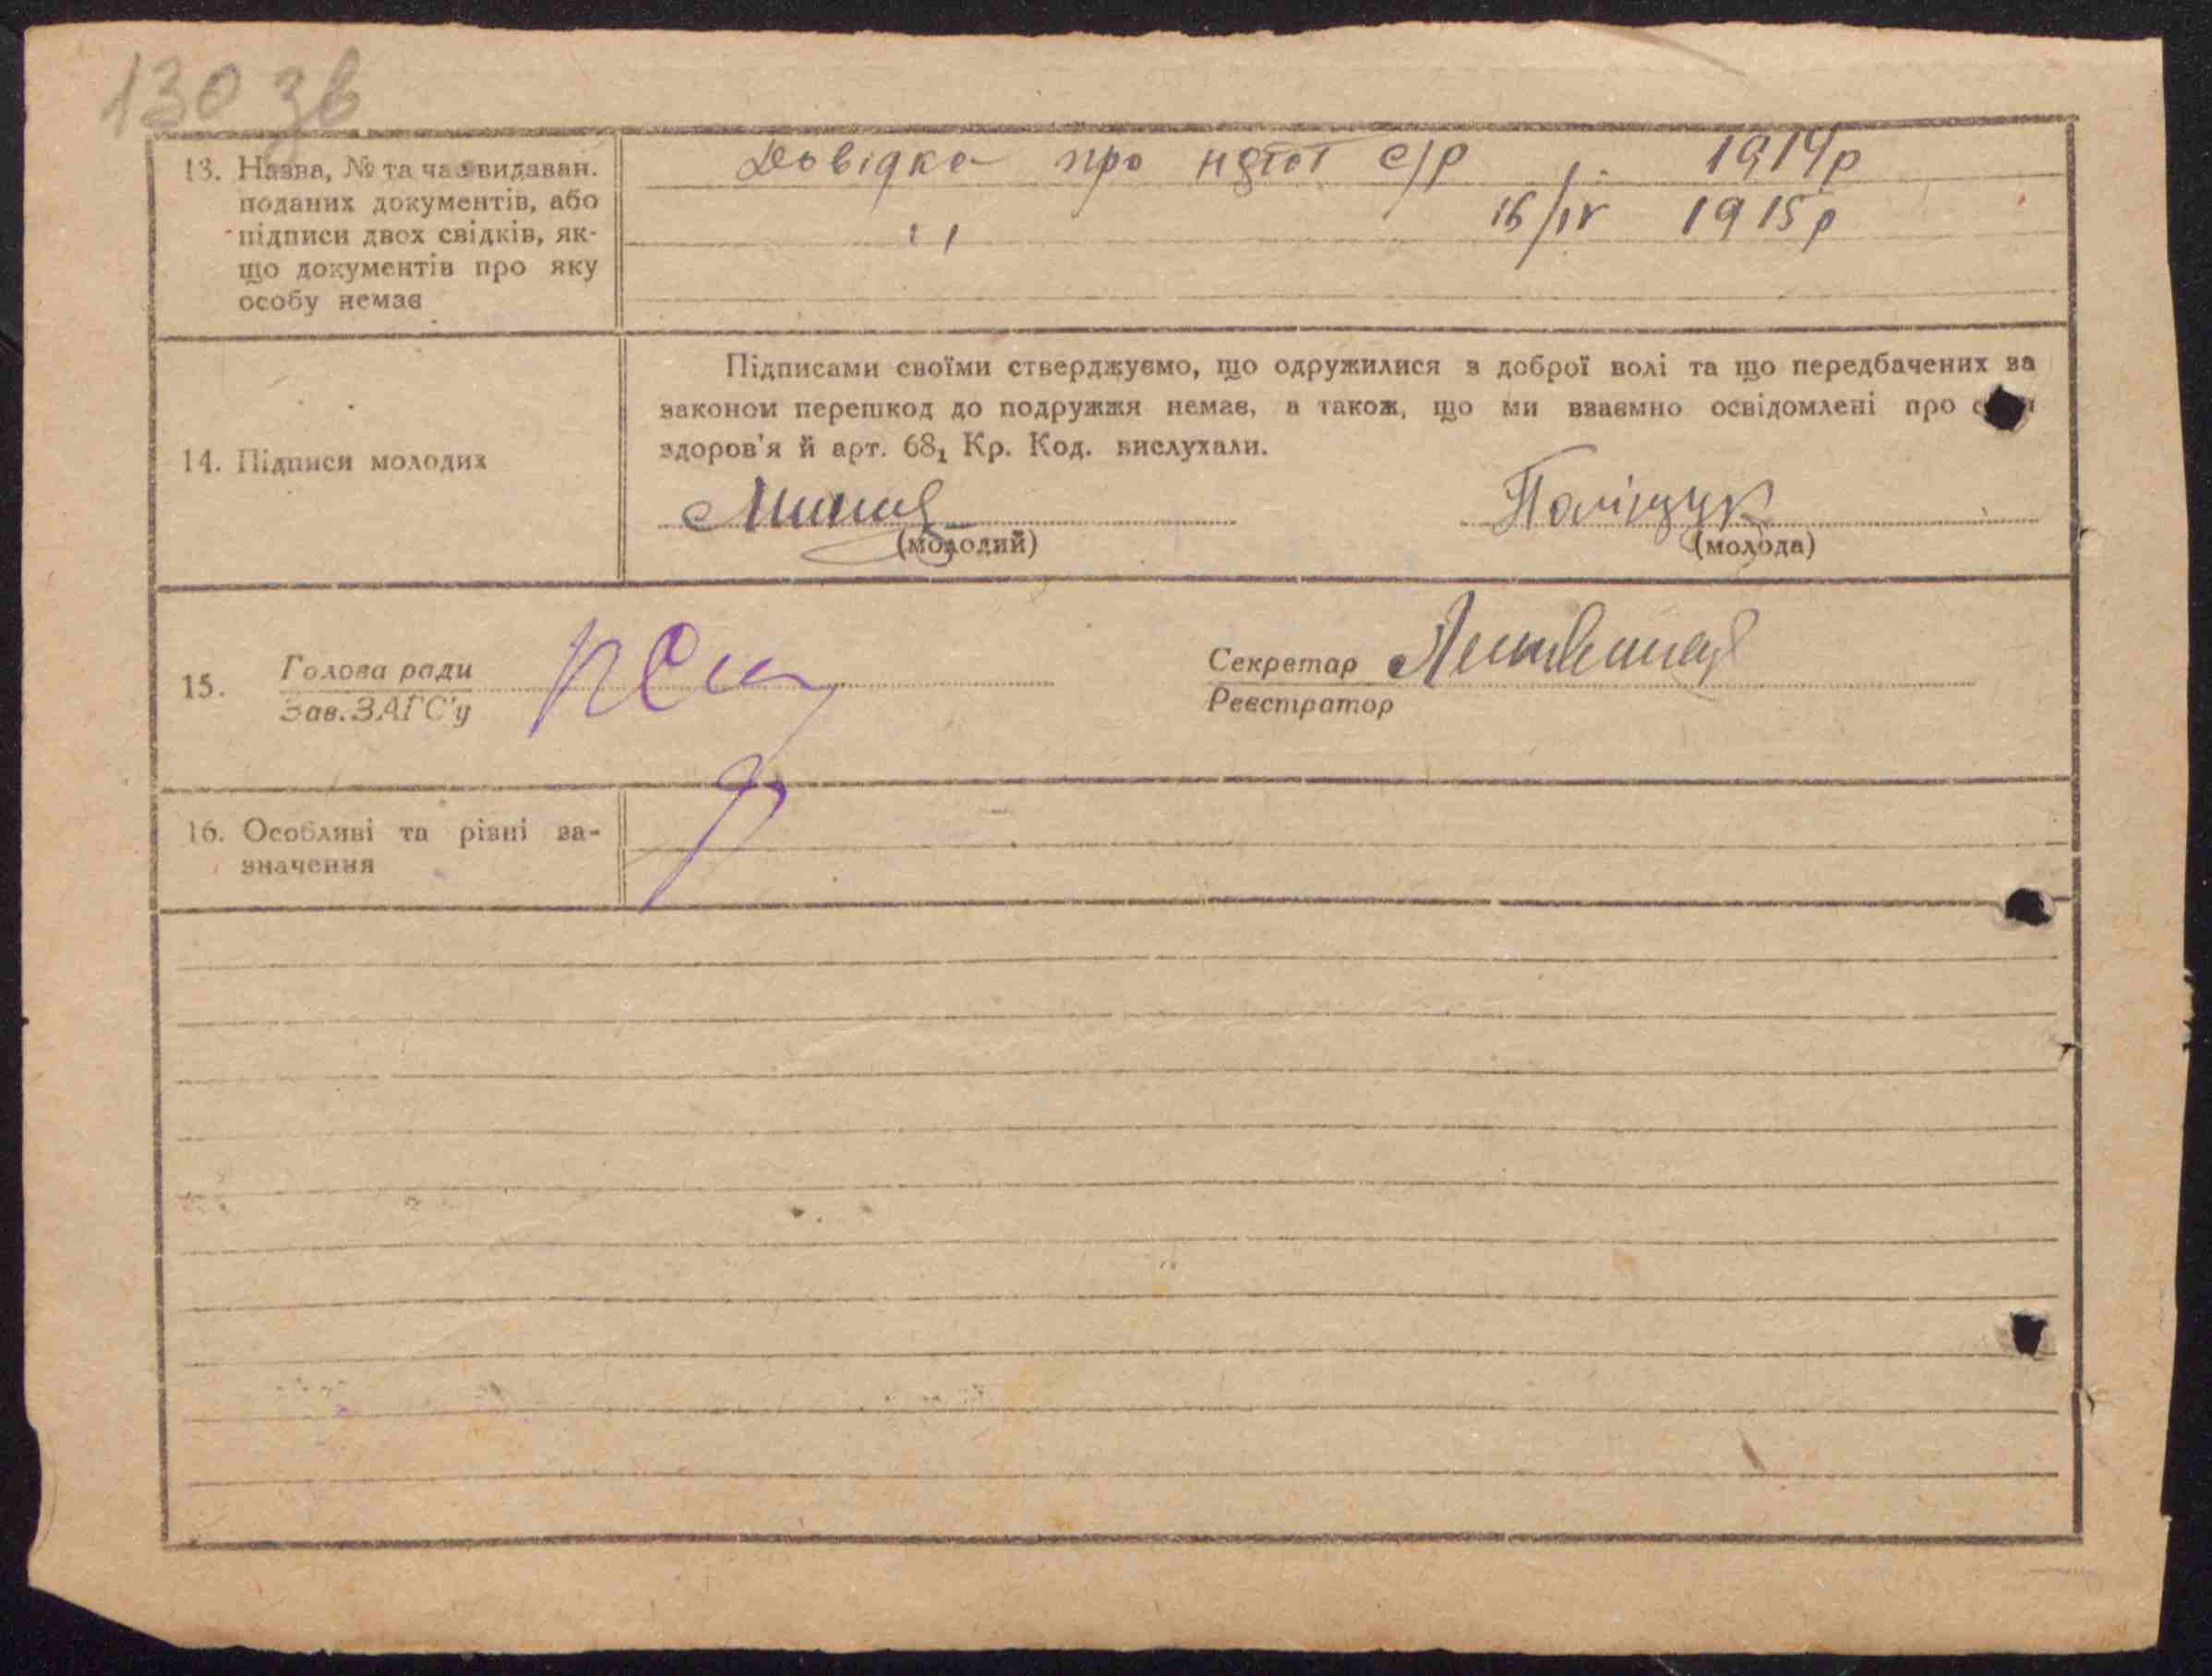 130 зв
13. Назва, № та час видаван.
поданих документів, або
підписи двох свідків, як-
що документів про яку
особу немає
Довідка про с/р 1914р
" 16/IV 1915р
14. Підписи молодих
Підписами своїми стверджуємо, що одружилися з доброї волі та що передбачених за
законом перешкод до подружжя немає, а також, що ми взаємно освідомлені про
здоров'я й арт. 68₁ Кр. Код. вислухали.
Поліщук
(молодий) (молода)
15. Голова ради
Зав. ЗАГС'у
Секретар
Реєстратор
16. Особливі та різні за-
значення